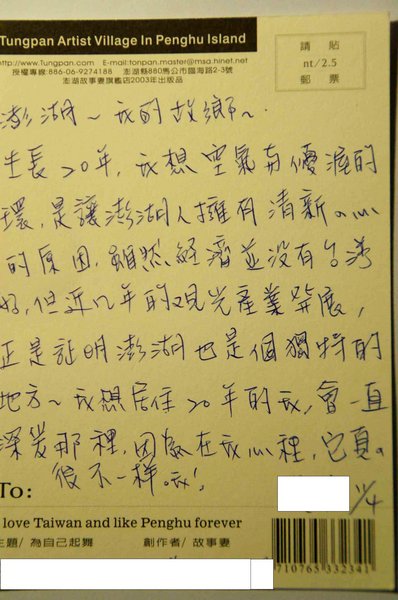 Tungpan Artist Village In Penghu Island
http://www.Tungpan.com E-mail:tonpan.master@msa.hinet.net
授權專線:886-06-9274188 澎湖縣880馬公市國海路2-3號
澎湖故事妻旗艦店2003年出版品
請貼
nt/2.5
郵票
澎湖~我的故鄉~.
生長20年,我想空氣有優雅的
環,是讓澎湖人擁有清新の心
的原因,雖然經濟並沒有台灣
好,但近几年的观光產業發展,
正是証明澎湖也是個獨特的
地方~我想居住20年的我,會一直
深爱那裡,因為在我心裡,它真の
很不一樣哦!
To:
11/4
love Taiwan and like Penghu forever
主題/ 為自己起舞 創作者/ 故事妻
710765 332341